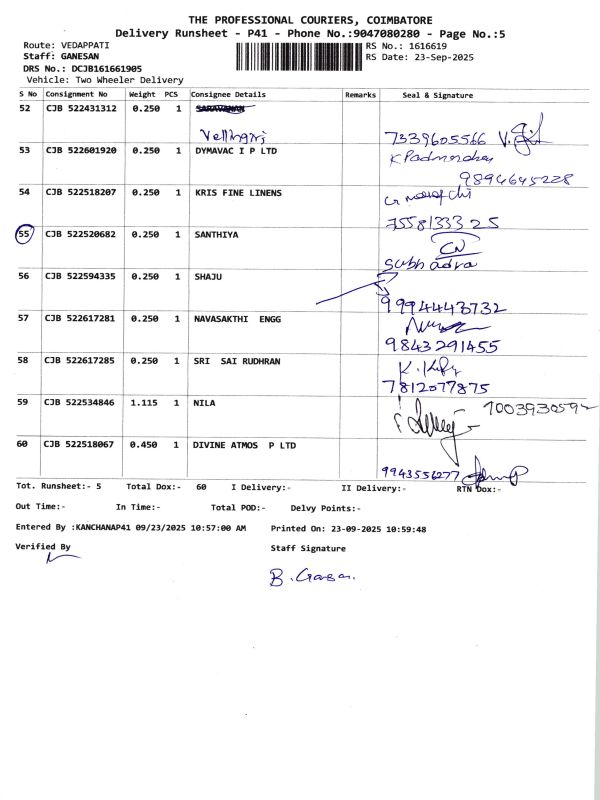 THE PROFESSIONAL COURIERS, COIMBATORE
Delivery Runsheet - P41 - Phone No.:9047080280 - Page No.:5
Route: VEDAPPATI
RS No.: 1616619
Staff: GANESAN
RS Date: 23-Sep-2025
DRS No.: DCJB161661905
Vehicle: Two Wheeler Delivery
S No Consignment No Weight PCS Consignee Details Remarks Seal & Signature
52 CJB 522431312 0.250 1 SARAVANAN
7339605566
53 CJB 522601920 0.250 1 DYMAVAC I P LTD
9894645228
54 CJB 522518207 0.250 1 KRIS FINE LINENS
7558133325
55 CJB 522520682 0.250 1 SANTHIYA
CN
Subhadra
56 CJB 522594335 0.250 1 SHAJU
9994443732
57 CJB 522617281 0.250 1 NAVASAKTHI ENGG
9843291455
58 CJB 522617285 0.250 1 SRI SAI RUDHRAN
7812077875
59 CJB 522534846 1.115 1 NILA
60 CJB 522518067 0.450 1 DIVINE ATMOS P LTD
9943556277
Tot. Runsheet:- 5 Total Dox:- 60 I Delivery:- II Delivery:- RTN Dox:-
Out Time:- In Time:- Total POD:- Delvy Points:-
Entered By :KANCHANAP41 09/23/2025 10:57:00 AM Printed On: 23-09-2025 10:59:48
Verified By Staff Signature